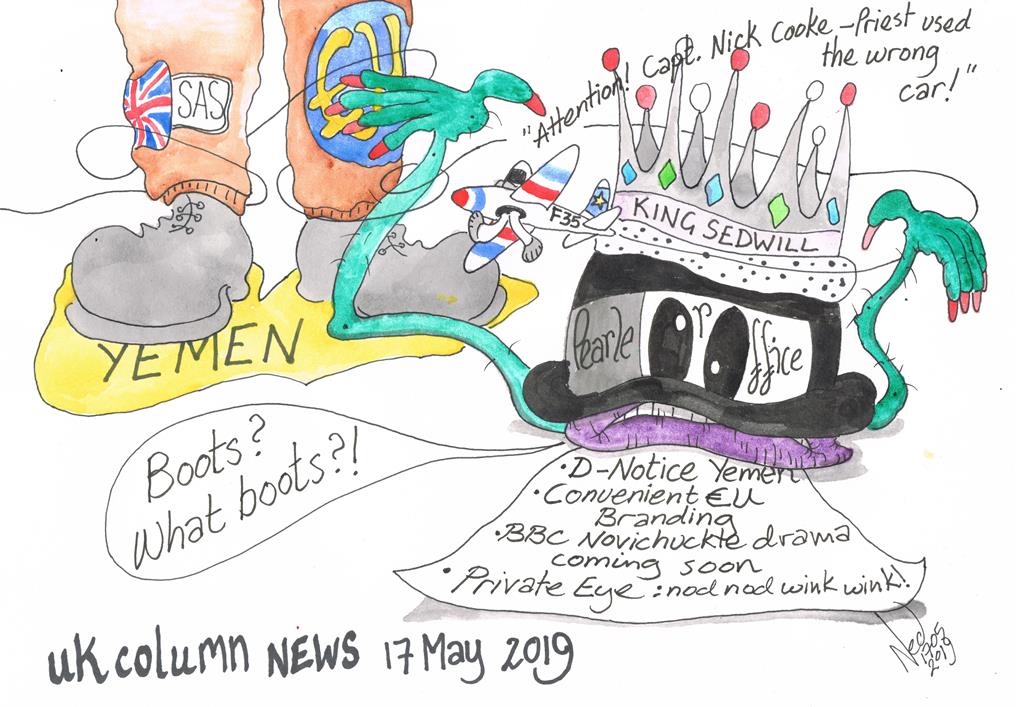 "Attention! Capt. Nick Cooke - Priest used
the wrong
car!"
SAS
€U
F35
KING SEDWILL
Pearle or office
YEMEN
Boots?
What boots?!
• D-Notice Yemen
• Convenient €U
Branding
• BBC Novichuckle drama
coming soon
• Private Eye : nod nod wink wink!
UK column NEWS 17 May 2019
2019